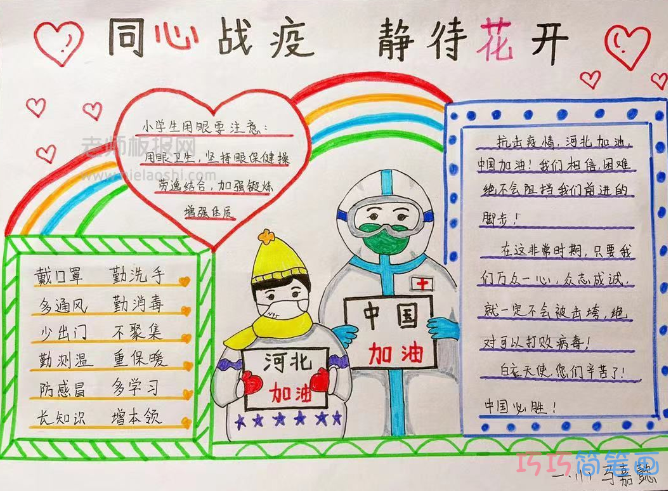 同心战疫 静待花开
小学生用眼要注意:
用眼卫生,坚持眼保健操
劳逸结合,加强锻炼
增强体质
老师板报网
www.nielaoshi.com
戴口罩 勤洗手
多通风 勤消毒
少出门 不聚集
勤测温 重保暖
防感冒 多学习
长知识 增本领
河北
加油
中国
加油
抗击疫情,河北加油,
中国加油!我们相信,困难
绝不会阻挡我们前进的
脚步!
在这非常时期,只要我
们万众一心,众志成诚,
就一定不会被击垮,绝
对可以打败病毒!
白衣天使,您们辛苦了!
中国必胜!
马嘉懿
巧巧简笔画